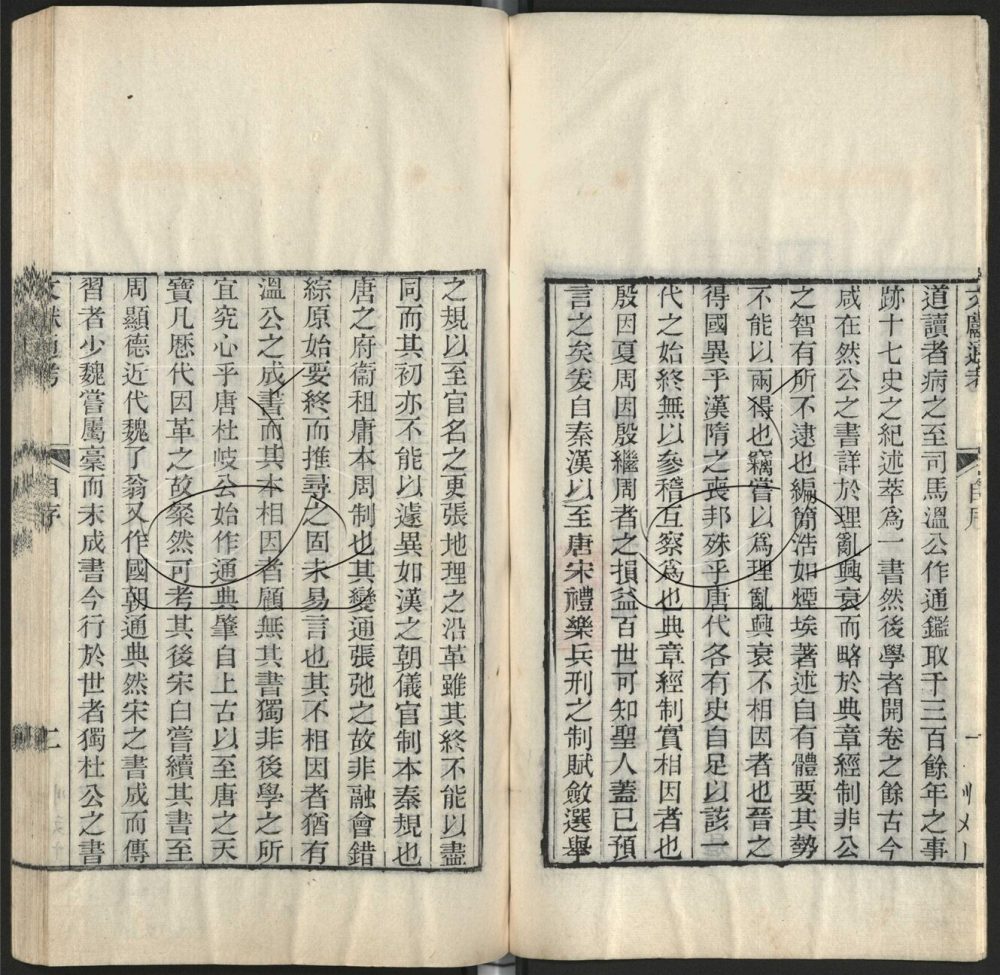 文獻通考
自序
一
道讀者病之至司馬溫公作通鑑取千三百餘年之事
跡十七史之紀述萃爲一書然後學者開卷之餘古今
咸在然公之書詳於理亂興衰而略於典章經制非公
之智有所不逮也編簡浩如煙埃著述自有體要其勢
不能以兩得也竊嘗以爲理亂興衰不相因者也晉之
得國異乎漢隋之喪邦殊乎唐代各有史自足以該一
代之始終無以參稽互察爲也典章經制實相因者也
殷因夏周因殷繼周者之損益百世可知聖人蓋已預
言之矣爰自秦漢以至唐宋禮樂兵刑之制賦斂選舉
之規以至官名之更張地理之沿革雖其終不能以盡
同而其初亦不能以遽異如漢之朝儀官制本秦規也
唐之府衞租庸本周制也其變通張弛之故非融會錯
綜原始要終而推尋之固未易言也其不相因者猶有
溫公之成書而其本相因者顧無其書獨非後學之所
宜究心乎唐杜岐公始作通典肇自上古以至唐之天
寶凡歷代因革之故粲然可考其後宋白嘗續其書至
周顯德近代魏了翁又作國朝通典然宋之書成而傳
習者少魏嘗屬稾而未成書今行於世者獨杜公之書
文獻通考
自序
二